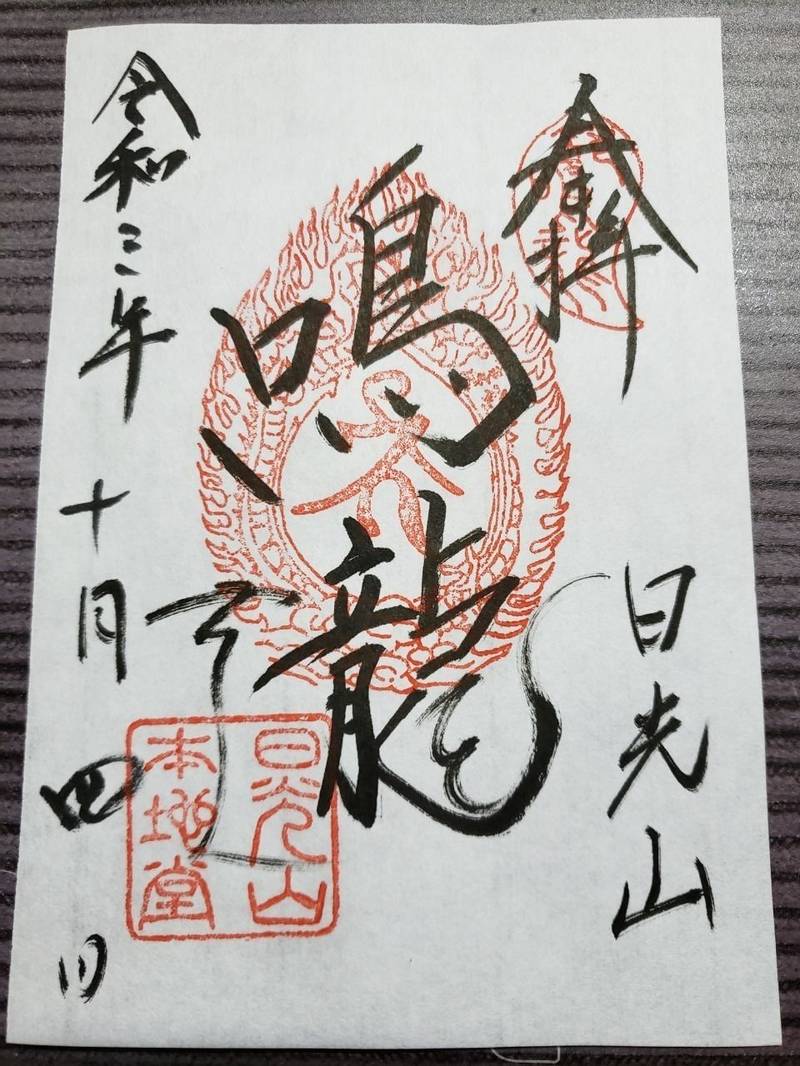 奉拝
日光山
鳴龍
令和三年十月四日
日光山
本地堂